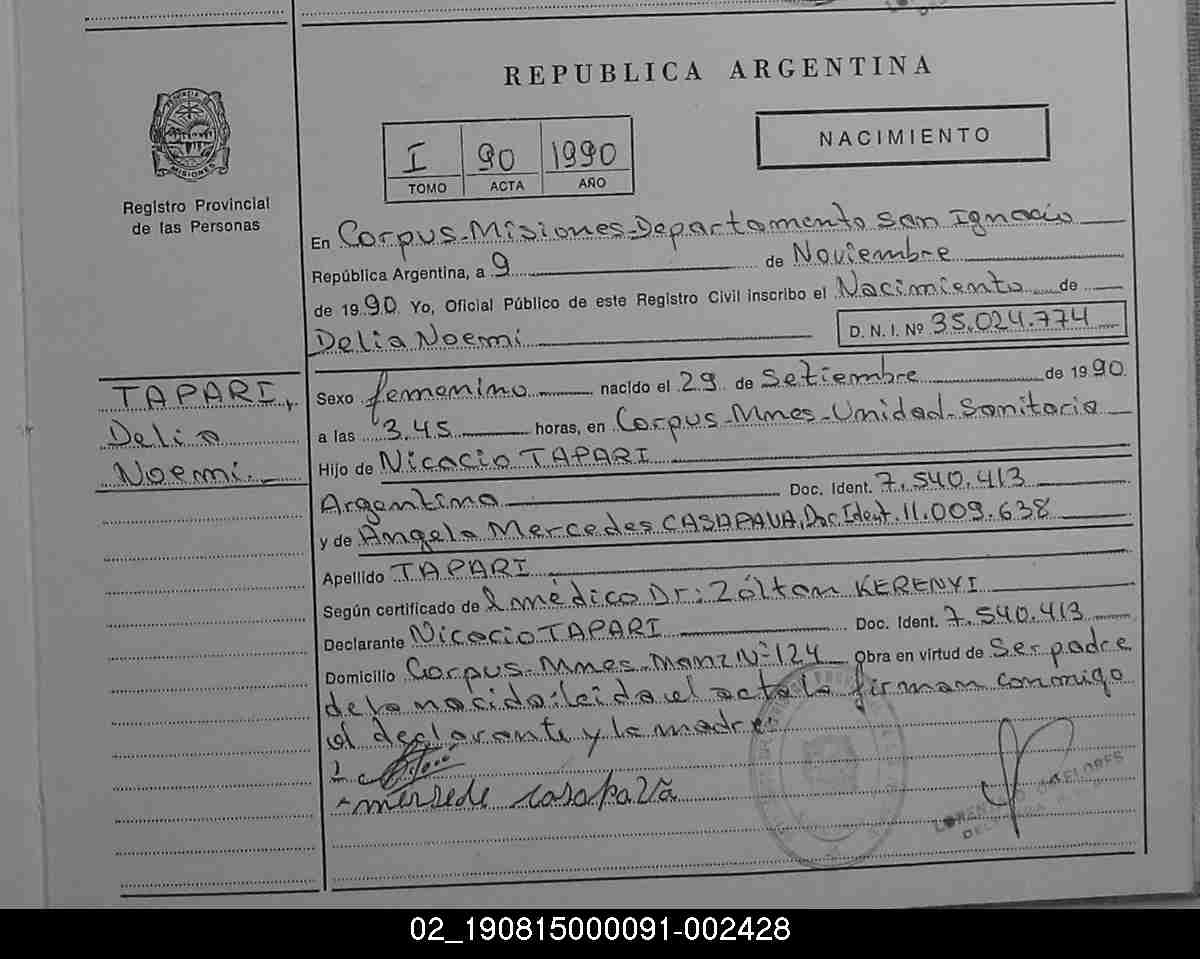 REPUBLICA ARGENTINA
PROVINCIA
MISIONES
Registro Provincial
de las Personas
I 90 1990
TOMO ACTA AÑO
NACIMIENTO
En Corpus-Misiones-Departamento San Ignacio
República Argentina, a 9 de Noviembre
de 1990 Yo, Oficial Público de este Registro Civil inscribo el Nacimiento de
Delia Noemi
D. N. I. Nº 35.024.774
TAPARI,
Delia
Noemi.
Sexo femenino nacido el 29 de Setiembre de 1990
a las 3.45 horas, en Corpus-Mnes-Unidad-Sanitaria
Hijo de Nicacio TAPARI
Argentino Doc. Ident. 7.540.413
y de Angela Mercedes CASAPAVA, Doc Ident. 11.009.638
Apellido TAPARI
Según certificado de l médico Dr: Zóltan KERENYI
Declarante Nicacio TAPARI Doc. Ident. 7.540.413
Domicilio Corpus-Mnes-Manz Nº 124 Obra en virtud de Ser padre
de la nacida: leida el acta la firman conmigo
el declarante y la madre:
mersede casapava
02_190815000091-002428